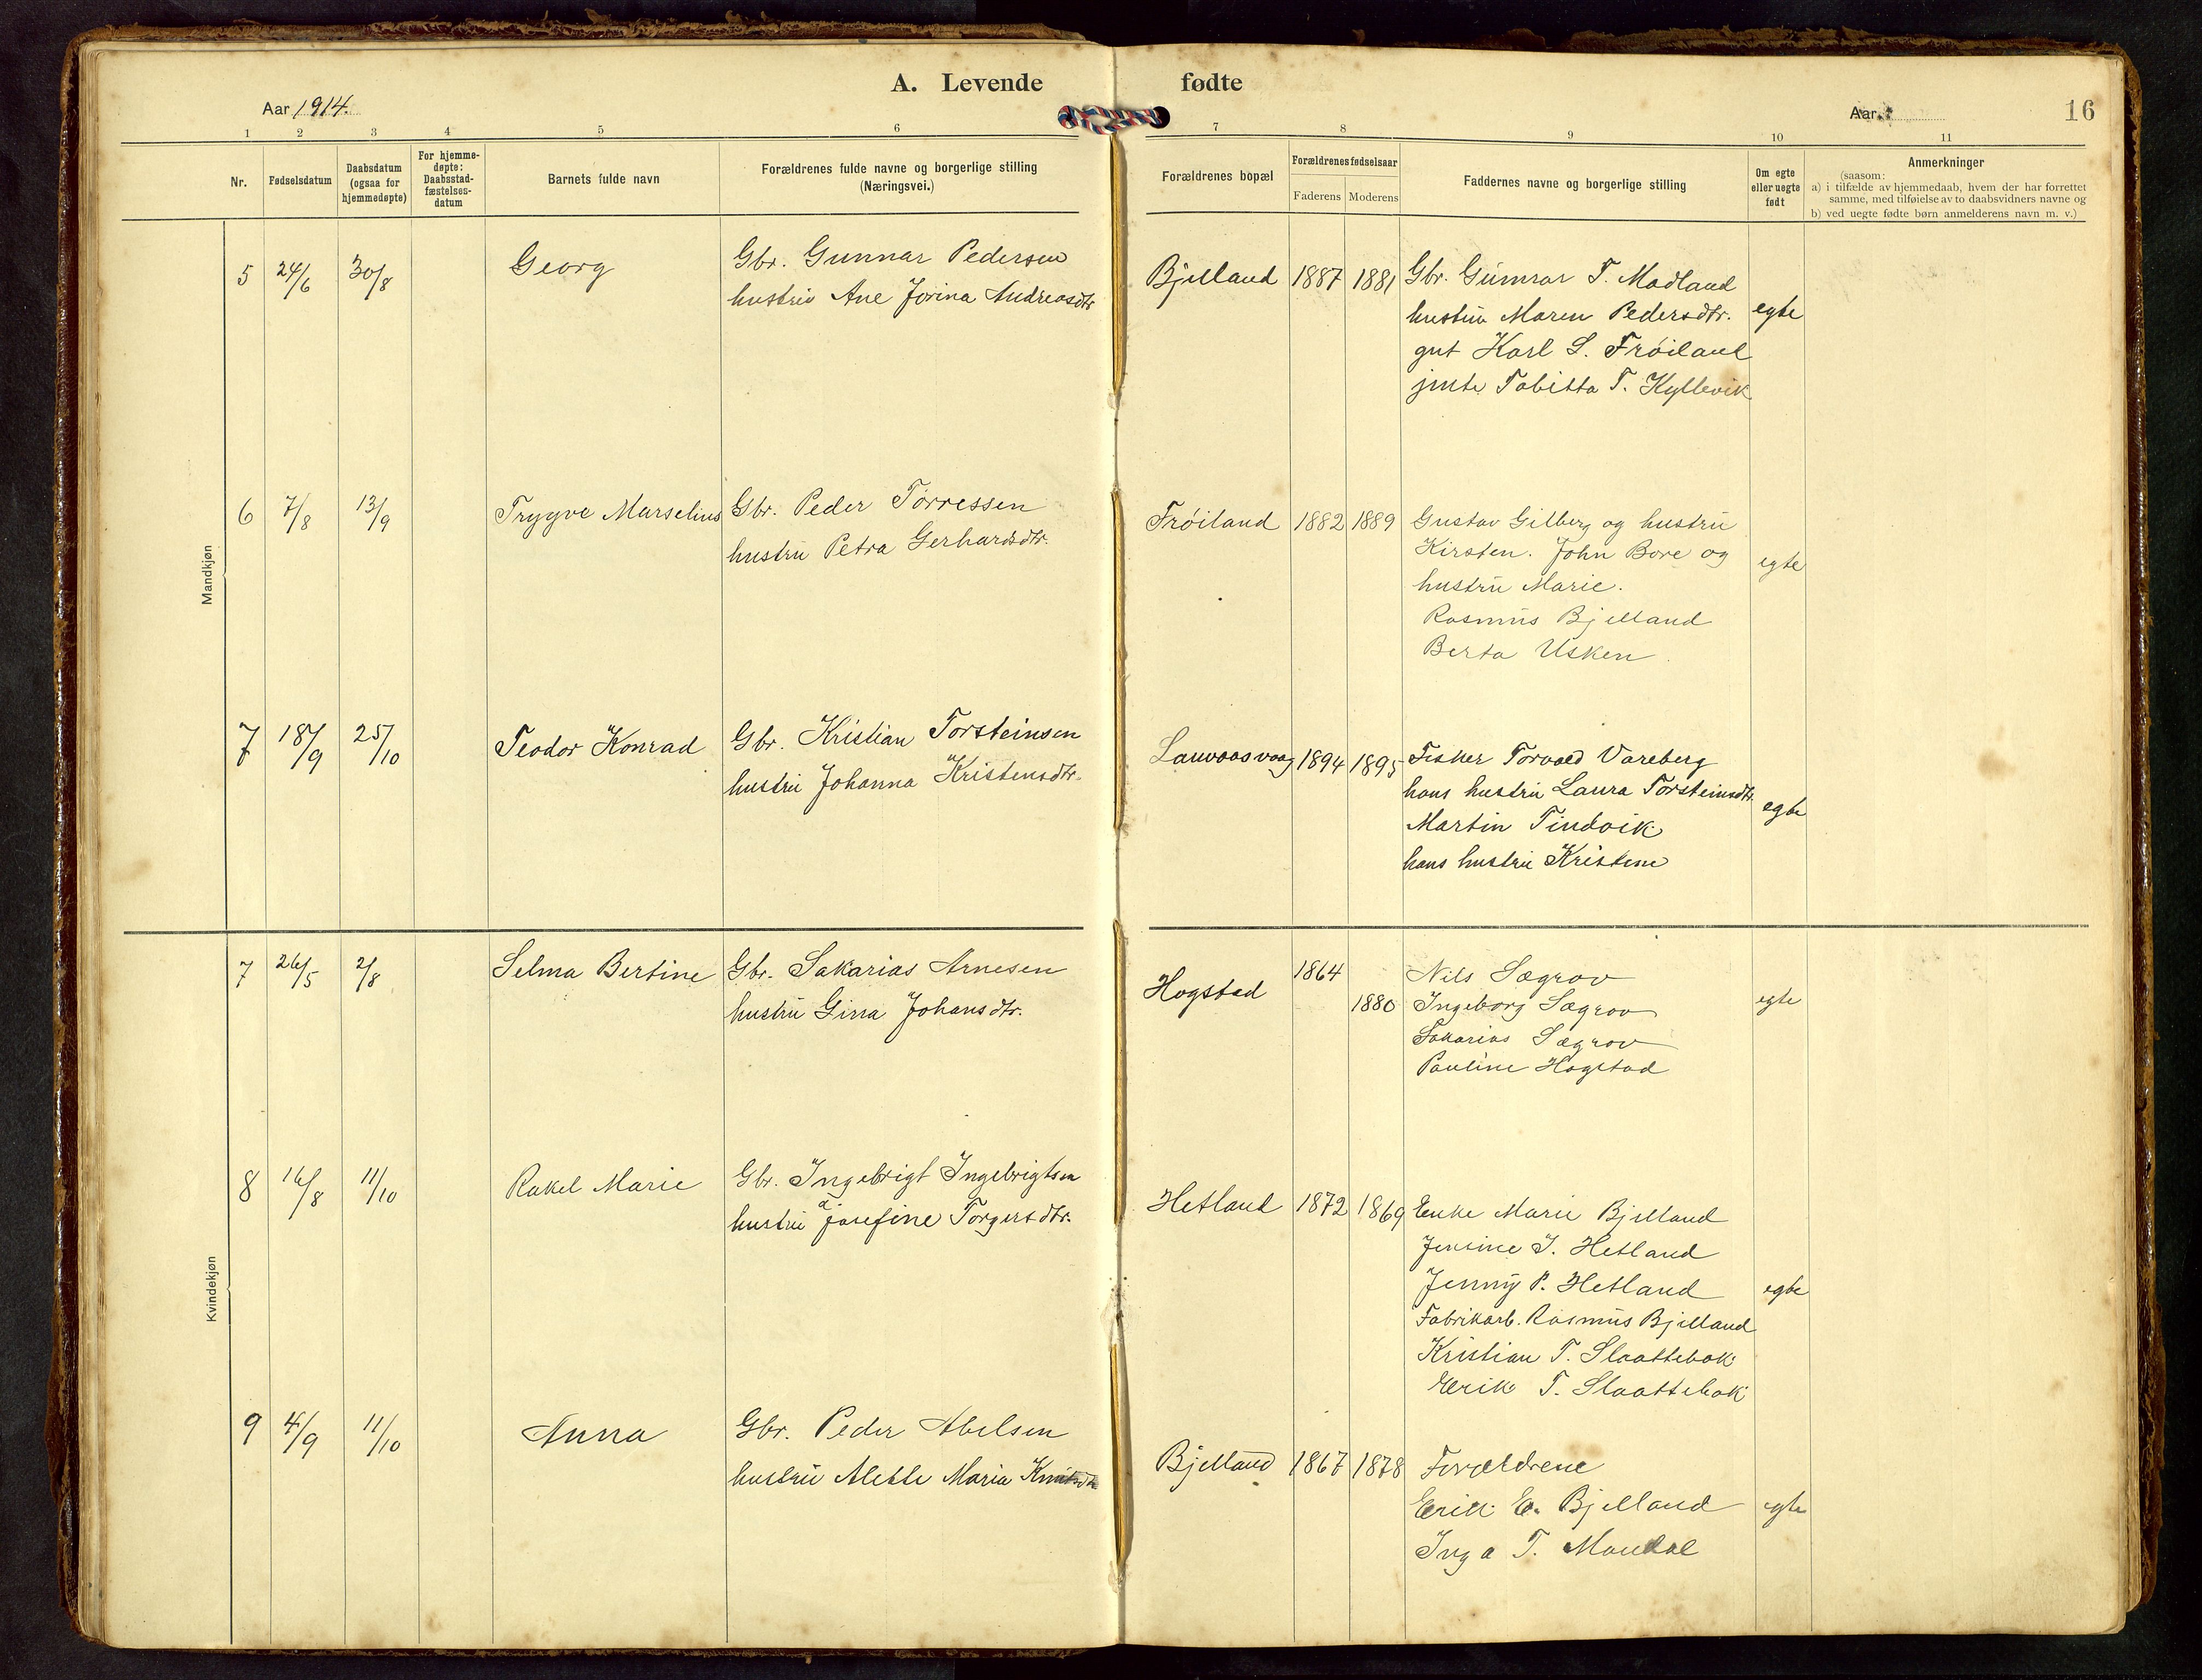 A. Levende fødte
Aar 1914.
Aar
16
1 2 3 4 5 6 7 8 9 10 11
Nr.
Fødselsdatum
Daabsdatum
(ogsaa for
hjemmedøpte)
For hjemme-
døpte:
Daabsstad-
fæstelses-
datum
Barnets fulde navn
Forældrenes fulde navne og borgerlige stilling
(Næringsvei.)
Forældrenes bopæl
Forældrenes fødselsaar
Faderens Moderens
Faddernes navne og borgerlige stilling
Om egte
eller uegte
født
Anmerkninger
(saasom:
a) i tilfælde av hjemmedaab, hvem der har forrettet
samme, med tilføielse av to daabsvidners navne og
b) ved uegte fødte børn anmelderens navn m. v.)
Mandkjøn
5 24/6 30/8 Georg
Gbr. Gunnar Pedersen
hustru Ane Jorina Andreasdtr
Bjelland 1887 1881
Gbr. Gunnar T. Madland
hustru Maren Pedersdtr.
gut Karl S. Frøiland
jente Tabitta T. Kyllevik
egte
6 7/8 13/9 Trygve Marselius
Gbr. Peder Torressen
hustru Petra Gerhardsdtr.
Frøiland 1882 1889
Gustav Gilberg og hustru
Kirsten. John Bore og
hustru Marie.
Rasmus Bjelland
Berta Usken
egte
7 18/9 25/10 Teodor Konrad
Gbr. Kristian Torsteinsen
hustru Johanna Kristensdtr.
Lauvaasvaag 1894 1895
Fisker Torvald Vareberg
hans hustru Laura Torsteinsdtr.
Martin Tindvik
hans hustru Kristine
egte
Kvindekjøn
7 26/5 2/8 Selma Bertine
Gbr. Sakarias Arnesen
hustru Gina Johansdtr.
Hogstad 1864
1880
Nils Sægrov
Ingeborg Sægrov
Sakarias Sægrov
Pauline Hogstad
egte
8 16/8 11/10 Rakel Marie
Gbr. Ingebrigt Ingebrigtsen
hustru Josefine Torgersdtr.
Hetland 1872 1869
Enke Marie Bjelland
Jensine I. Hetland
Jenny P. Hetland
Fabrikarb. Rasmus Bjelland
Kristian T. Slaattebak
Erik T. Slaattebak
egte
9 4/9 11/10 Anna
Gbr. Peder Abelsen
hustru Alette Maria Knutsdtr
Bjelland 1867 1878
Forældrene
Erik E. Bjelland
Inga T. Mandal
egte